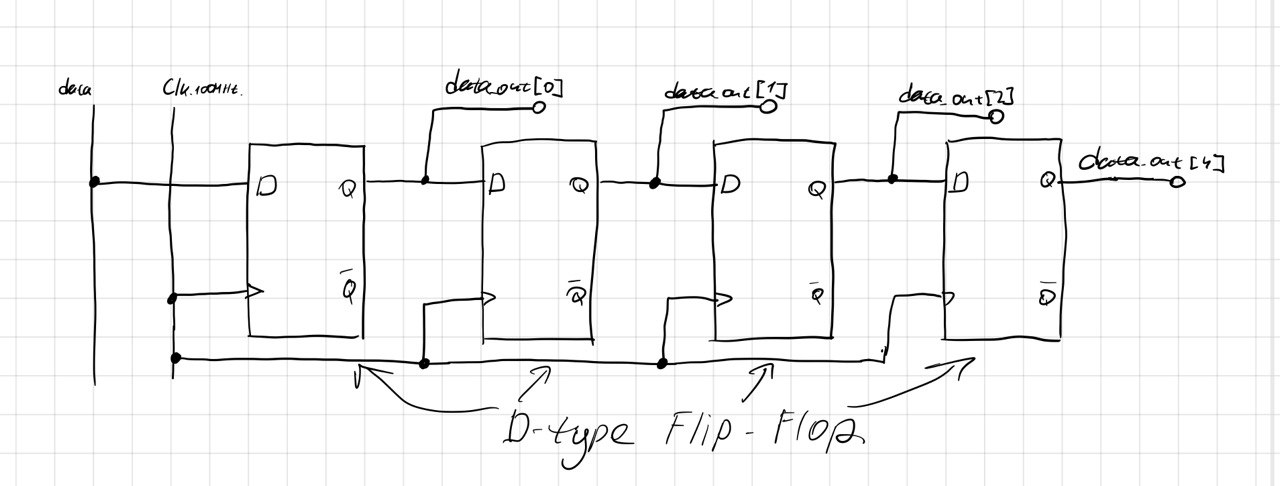 data
Clk.100MHz.
data_out[0]
data_out[1]
data_out[2]
data_out[4]
D
Q
Q̅
D
Q
Q̅
D
Q
Q̅
D
Q
Q̅
D-type Flip-Flop